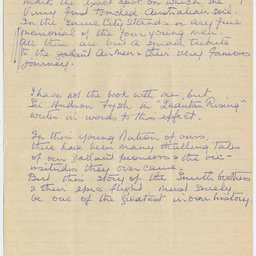 mark the exact spot on which the
Vimy first touched Australian soil.
In the same city stands a very fine
memorial of the four young men.
All these are but a small tribute
to the gallant Airmen & their very famous
Journey.
I have not the book with me, but
Sir Hudson Fysh in "Qantas Rising"
writes in words to this effect.
In this young Nation of ours,
there have been many thrilling tales
of our gallant pioneers & the vic-
issitudes they overcame.
But this story of the Smith brothers
& their epic flight must surely
be one of the greatest in our history.